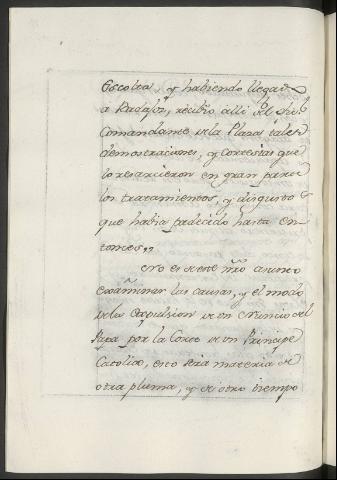 Escolta, y habiendo llegado
a Badajoz, recibio alli del
Comandante de la Plaza tales
demostraciones, y Cortesias que
lo resarcieron en gran parte
los tratamientos, y disgustos
que habia padecido hasta en-
tonces,,
No es de este nro asunto
examinar las causas, y el modo
de la expulsion de un Nuncio del
Papa por la Corte de un Principe
Catolico, esto sera materia de
otra pluma, y de otro tiempo